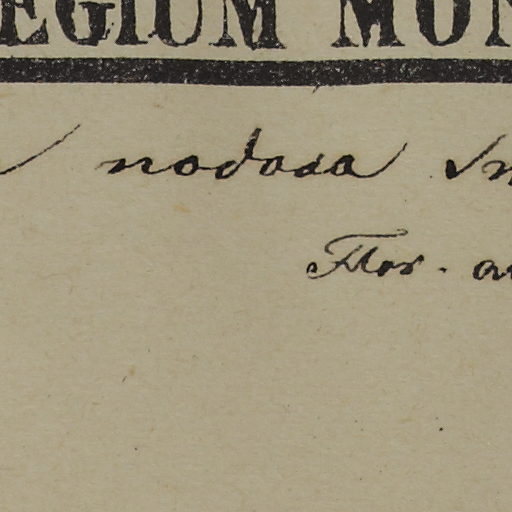 EGIUM MON
nodosa Sm
Flor. au